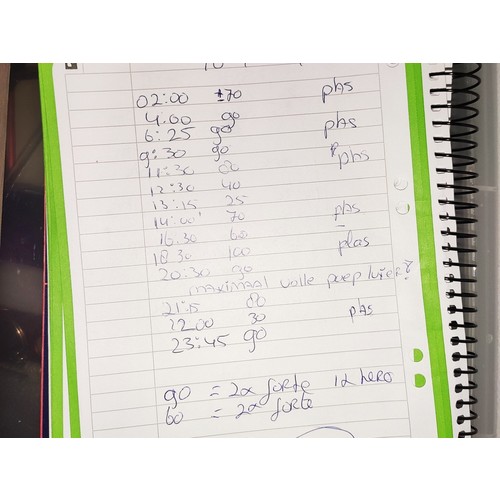 02:00 ±70 plas
4:00 90
6:25 90 plas
9:30 90 plas
11:30
12:30 40
13:15 25
14:00 70 plas
16.30 60
18.30 100 plas
20:30 90
maximaal volle poep luier?
21:15
22.00 30 plas
23:45 90
90 = 2x forte 1x hero
60 = 2x forte